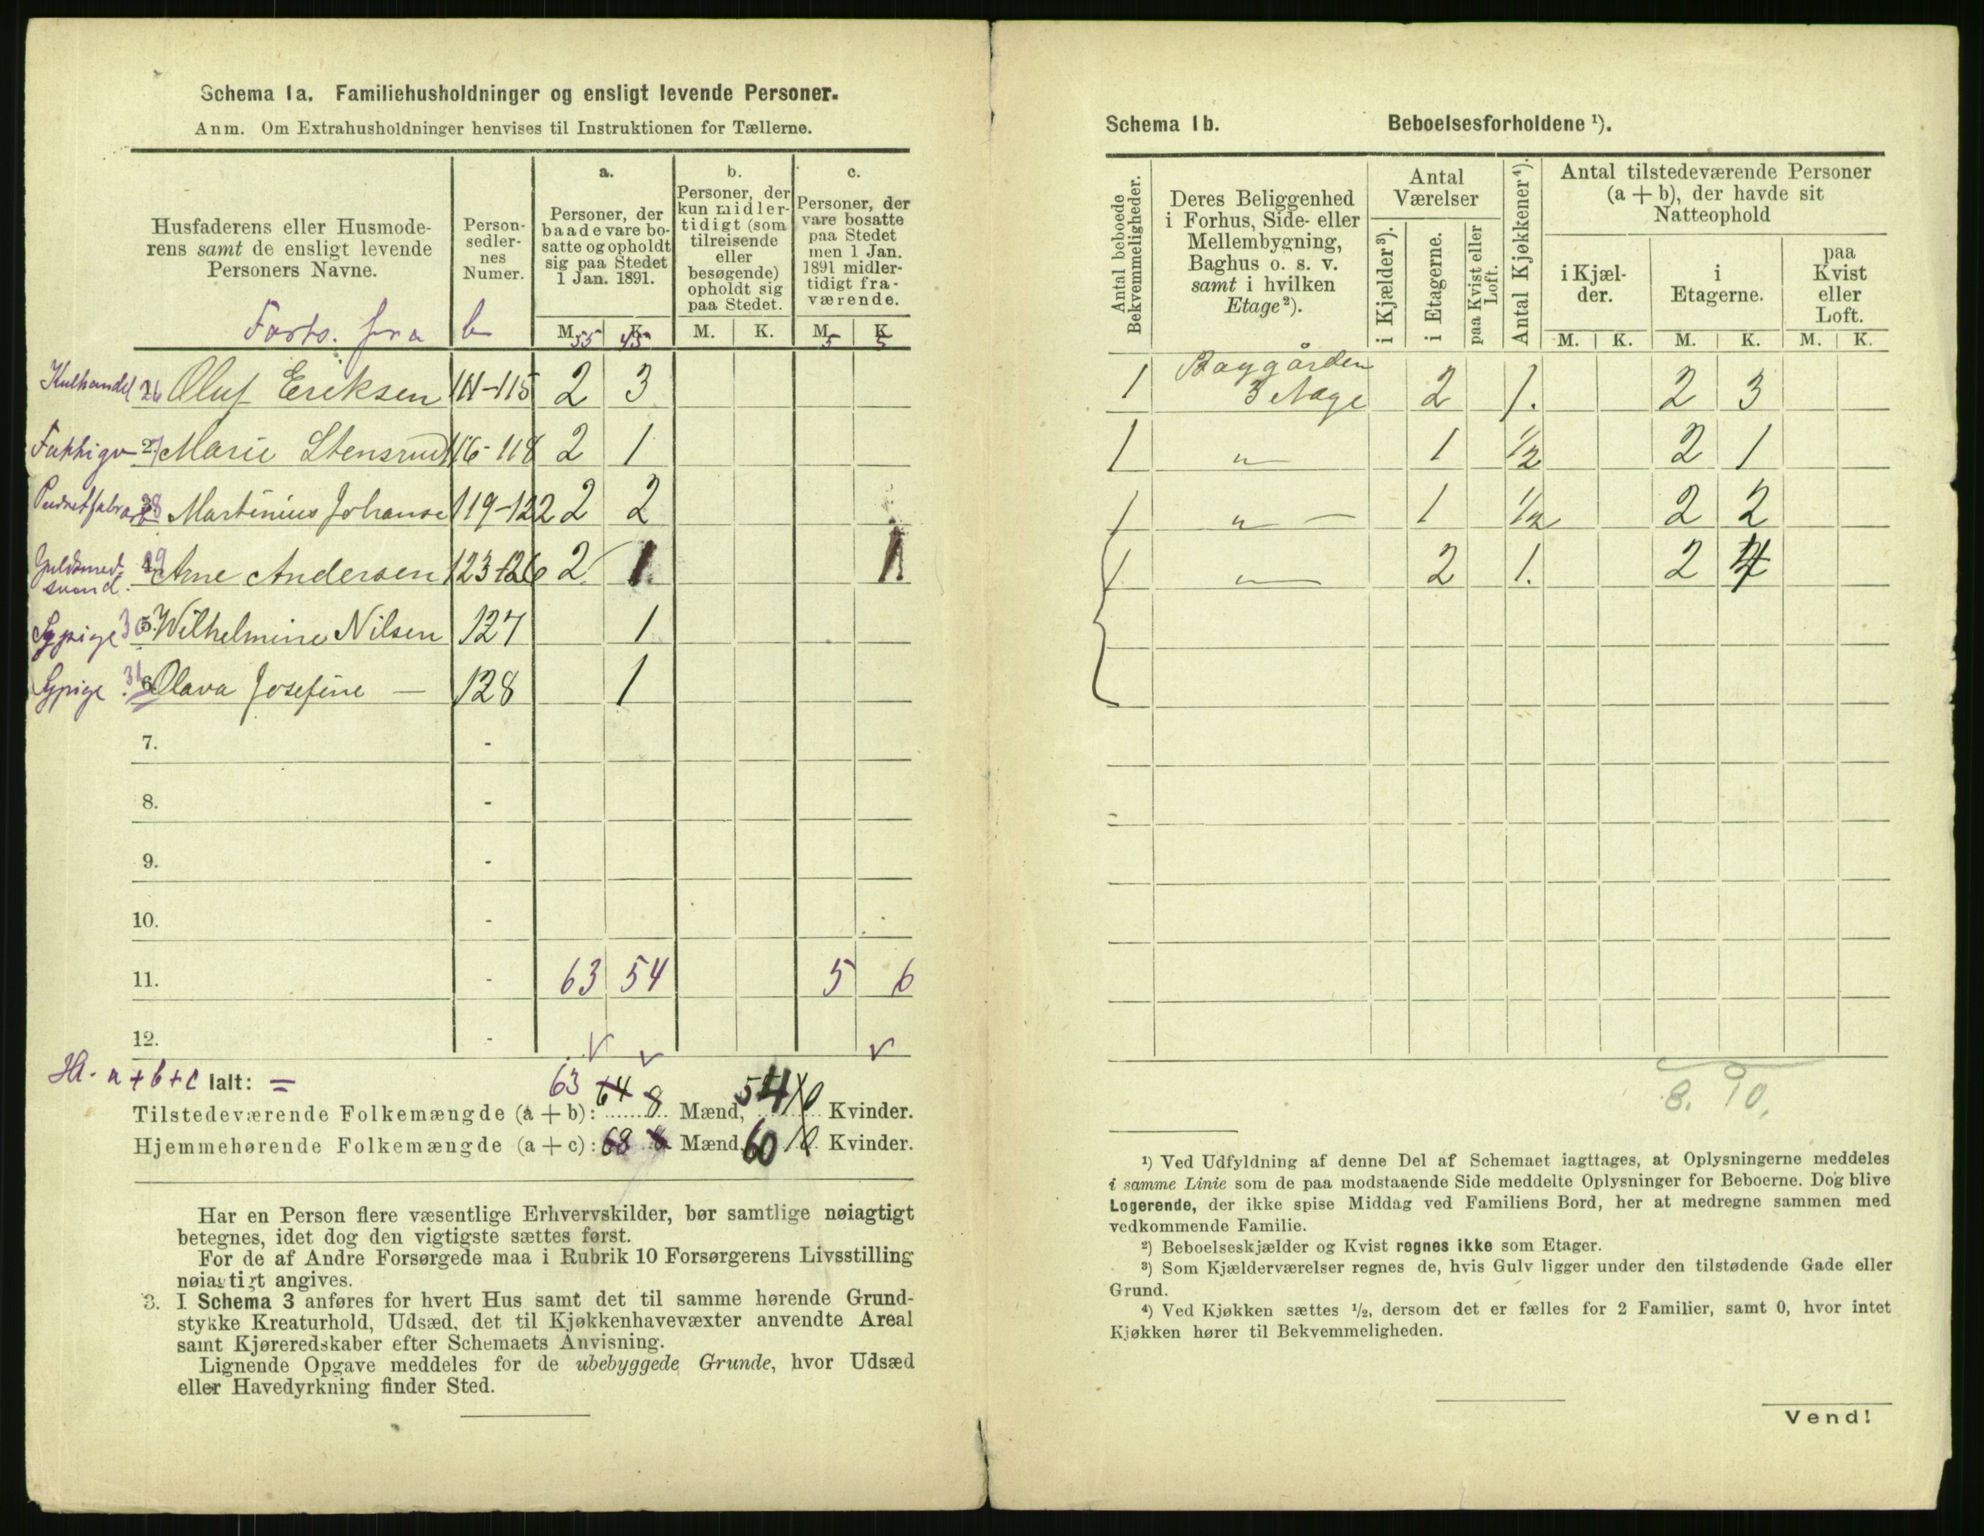 Schema 1a. Familiehusholdninger og ensligt levende Personer.
Anm. Om Extrahusholdninger henvises til Instruktionen for Tællerne.
Husfaderens eller Husmode-
rens samt de ensligt levende
Personers Navne.
Person-
sedler-
nes
Numer.
a.
Personer, der
baade vare bo-
satte og opholdt
sig paa Stedet
1 Jan. 1891.
b.
Personer, der
kun midler-
tidigt (som
tilreisende
eller
besøgende)
opholdt sig
paa Stedet.
c.
Personer, der
vare bosatte
paa Stedet
men 1 Jan.
1891 midler-
tidigt fra-
værende.
M. K. M. K. M. K.
Forts. fra b 55 45 5 5
Kulhandel 26 Oluf Eriksen 111-115 2 3
Fakkigv 27 Marie Stensrud 116-118 2 1
28 Martinius Johanse 119-122 2 2
Guldsmed-
svend. 29 Arne Andersen 123-126 2 1 1
Sypige 30 5. Wilhelmine Nilsen 127 1
Sypige 31 6 Olava Josefine — 128 1
7. -
8. -
9. -
10. -
11. - 63 54 5 6
12. -
a + b + c Ialt: =
Tilstedeværende Folkemængde (a + b): 63 64 8 Mænd, 54 10 Kvinder.
Hjemmehørende Folkemængde (a + c): 68 8 Mænd, 60 10 Kvinder.
Har en Person flere væsentlige Erhvervskilder, bør samtlige nøiagtigt
betegnes, idet dog den vigtigste sættes først.
For de af Andre Forsørgede maa i Rubrik 10 Forsørgerens Livsstilling
nøiagtigt angives.
3. I Schema 3 anføres for hvert Hus samt det til samme hørende Grund-
stykke Kreaturhold, Udsæd, det til Kjøkkenhavevæxter anvendte Areal
samt Kjøreredskaber efter Schemaets Anvisning.
Lignende Opgave meddeles for de ubebyggede Grunde, hvor Udsæd
eller Havedyrkning finder Sted.
Schema 1b. Beboelsesforholdene ¹).
Antal beboede
Bekvemmeligheder.
Deres Beliggenhed
i Forhus, Side- eller
Mellembygning,
Baghus o. s. v.
samt i hvilken
Etage²).
Antal
Værelser
i Kjælder³).
i Etagerne.
paa Kvist eller
Loft.
Antal Kjøkkener⁴).
Antal tilstedeværende Personer
(a + b), der havde sit
Natteophold
i Kjæl-
der.
i
Etagerne.
paa
Kvist
eller
Loft.
M. K. M. K. M. K.
1 Baggården
3 2 1. 2 3
1 " 1 1/2 2 1
1 " — 1 1/2 2 2
1 " 2 1. 2 4
8. 10.
¹) Ved Udfyldning af denne Del af Schemaet iagttages, at Oplysningerne meddeles
i samme Linie som de paa modstaaende Side meddelte Oplysninger for Beboerne. Dog blive
Logerende, der ikke spise Middag ved Familiens Bord, her at medregne sammen med
vedkommende Familie.
²) Beboelseskjælder og Kvist regnes ikke som Etager.
³) Som Kjælderværelser regnes de, hvis Gulv ligger under den tilstødende Gade eller
Grund.
⁴) Ved Kjøkken sættes ½, dersom det er fælles for 2 Familier, samt 0, hvor intet
Kjøkken hører til Bekvemmeligheden.
Vend!